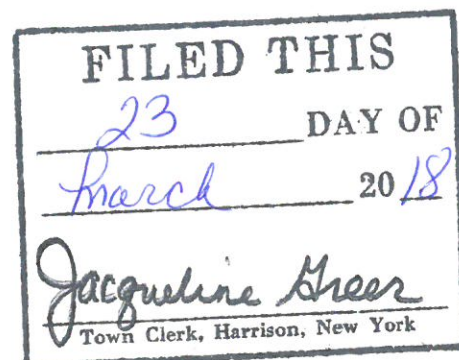 FILED THIS
23 DAY OF
March 2018
Jacqueline Greer
Town Clerk, Harrison, New York